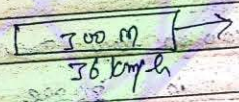 300 m
36 kmph